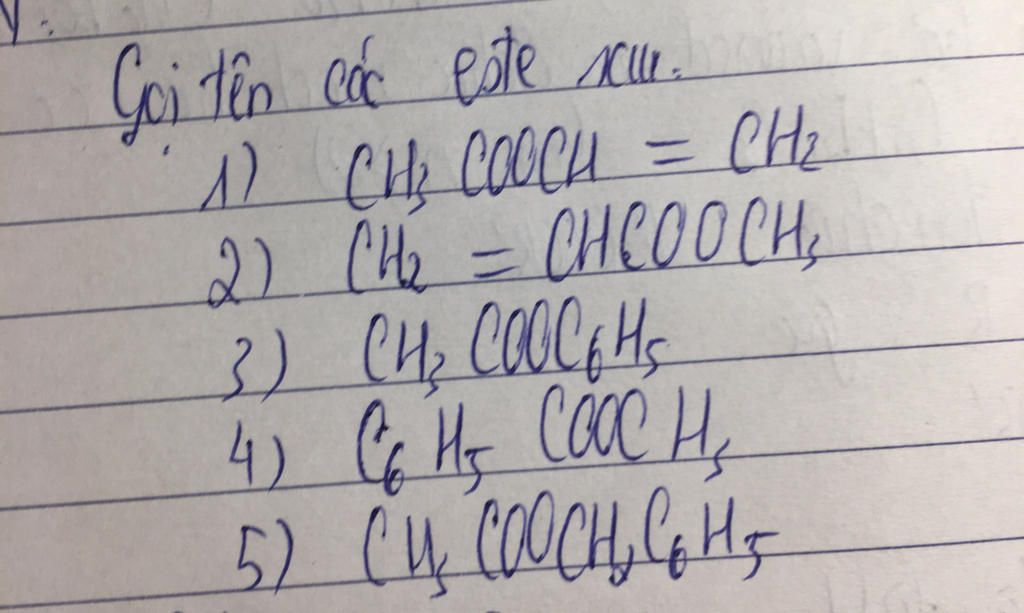 Gọi tên các este sau.
1) CH3 COOCH = CH2
2) CH2 = CHCOOCH3
3) CH3 COOC6H5
4) C6H5 COOCH3
5) CH3 COOCH2C6H5